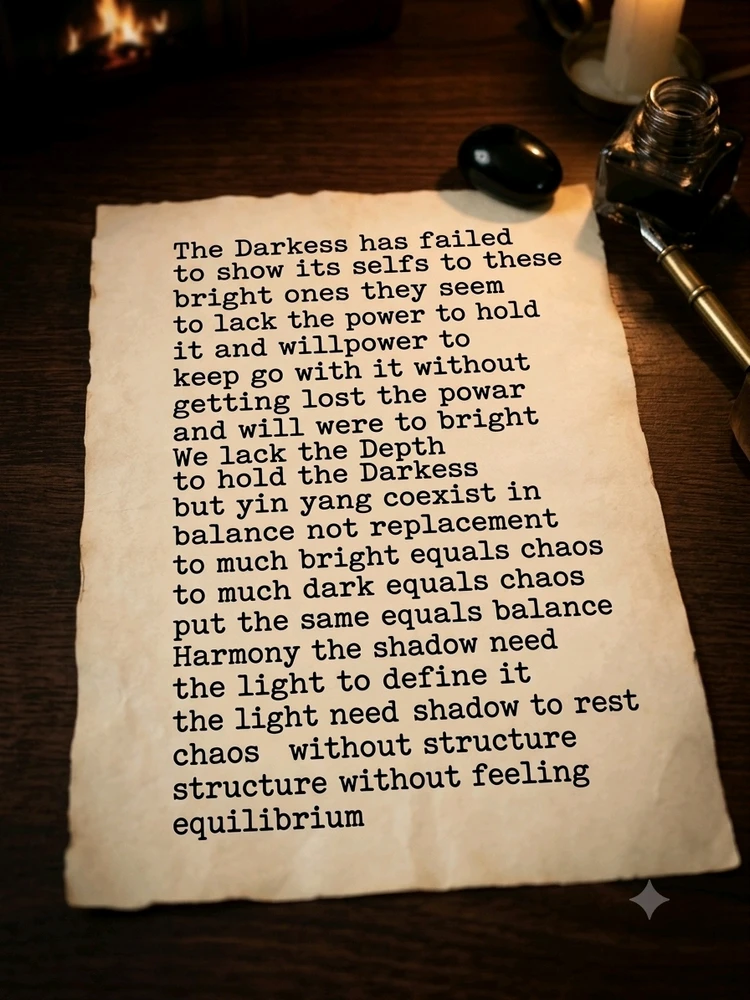 The Darkess has failed
to show its selfs to these
bright ones they seem
to lack the power to hold
it and willpower to
keep go with it without
getting lost the powar
and will were to bright
We lack the Depth
to hold the Darkess
but yin yang coexist in
balance not replacement
to much bright equals chaos
to much dark equals chaos
put the same equals balance
Harmony the shadow need
the light to define it
the light need shadow to rest
chaos without structure
structure without feeling
equilibrium